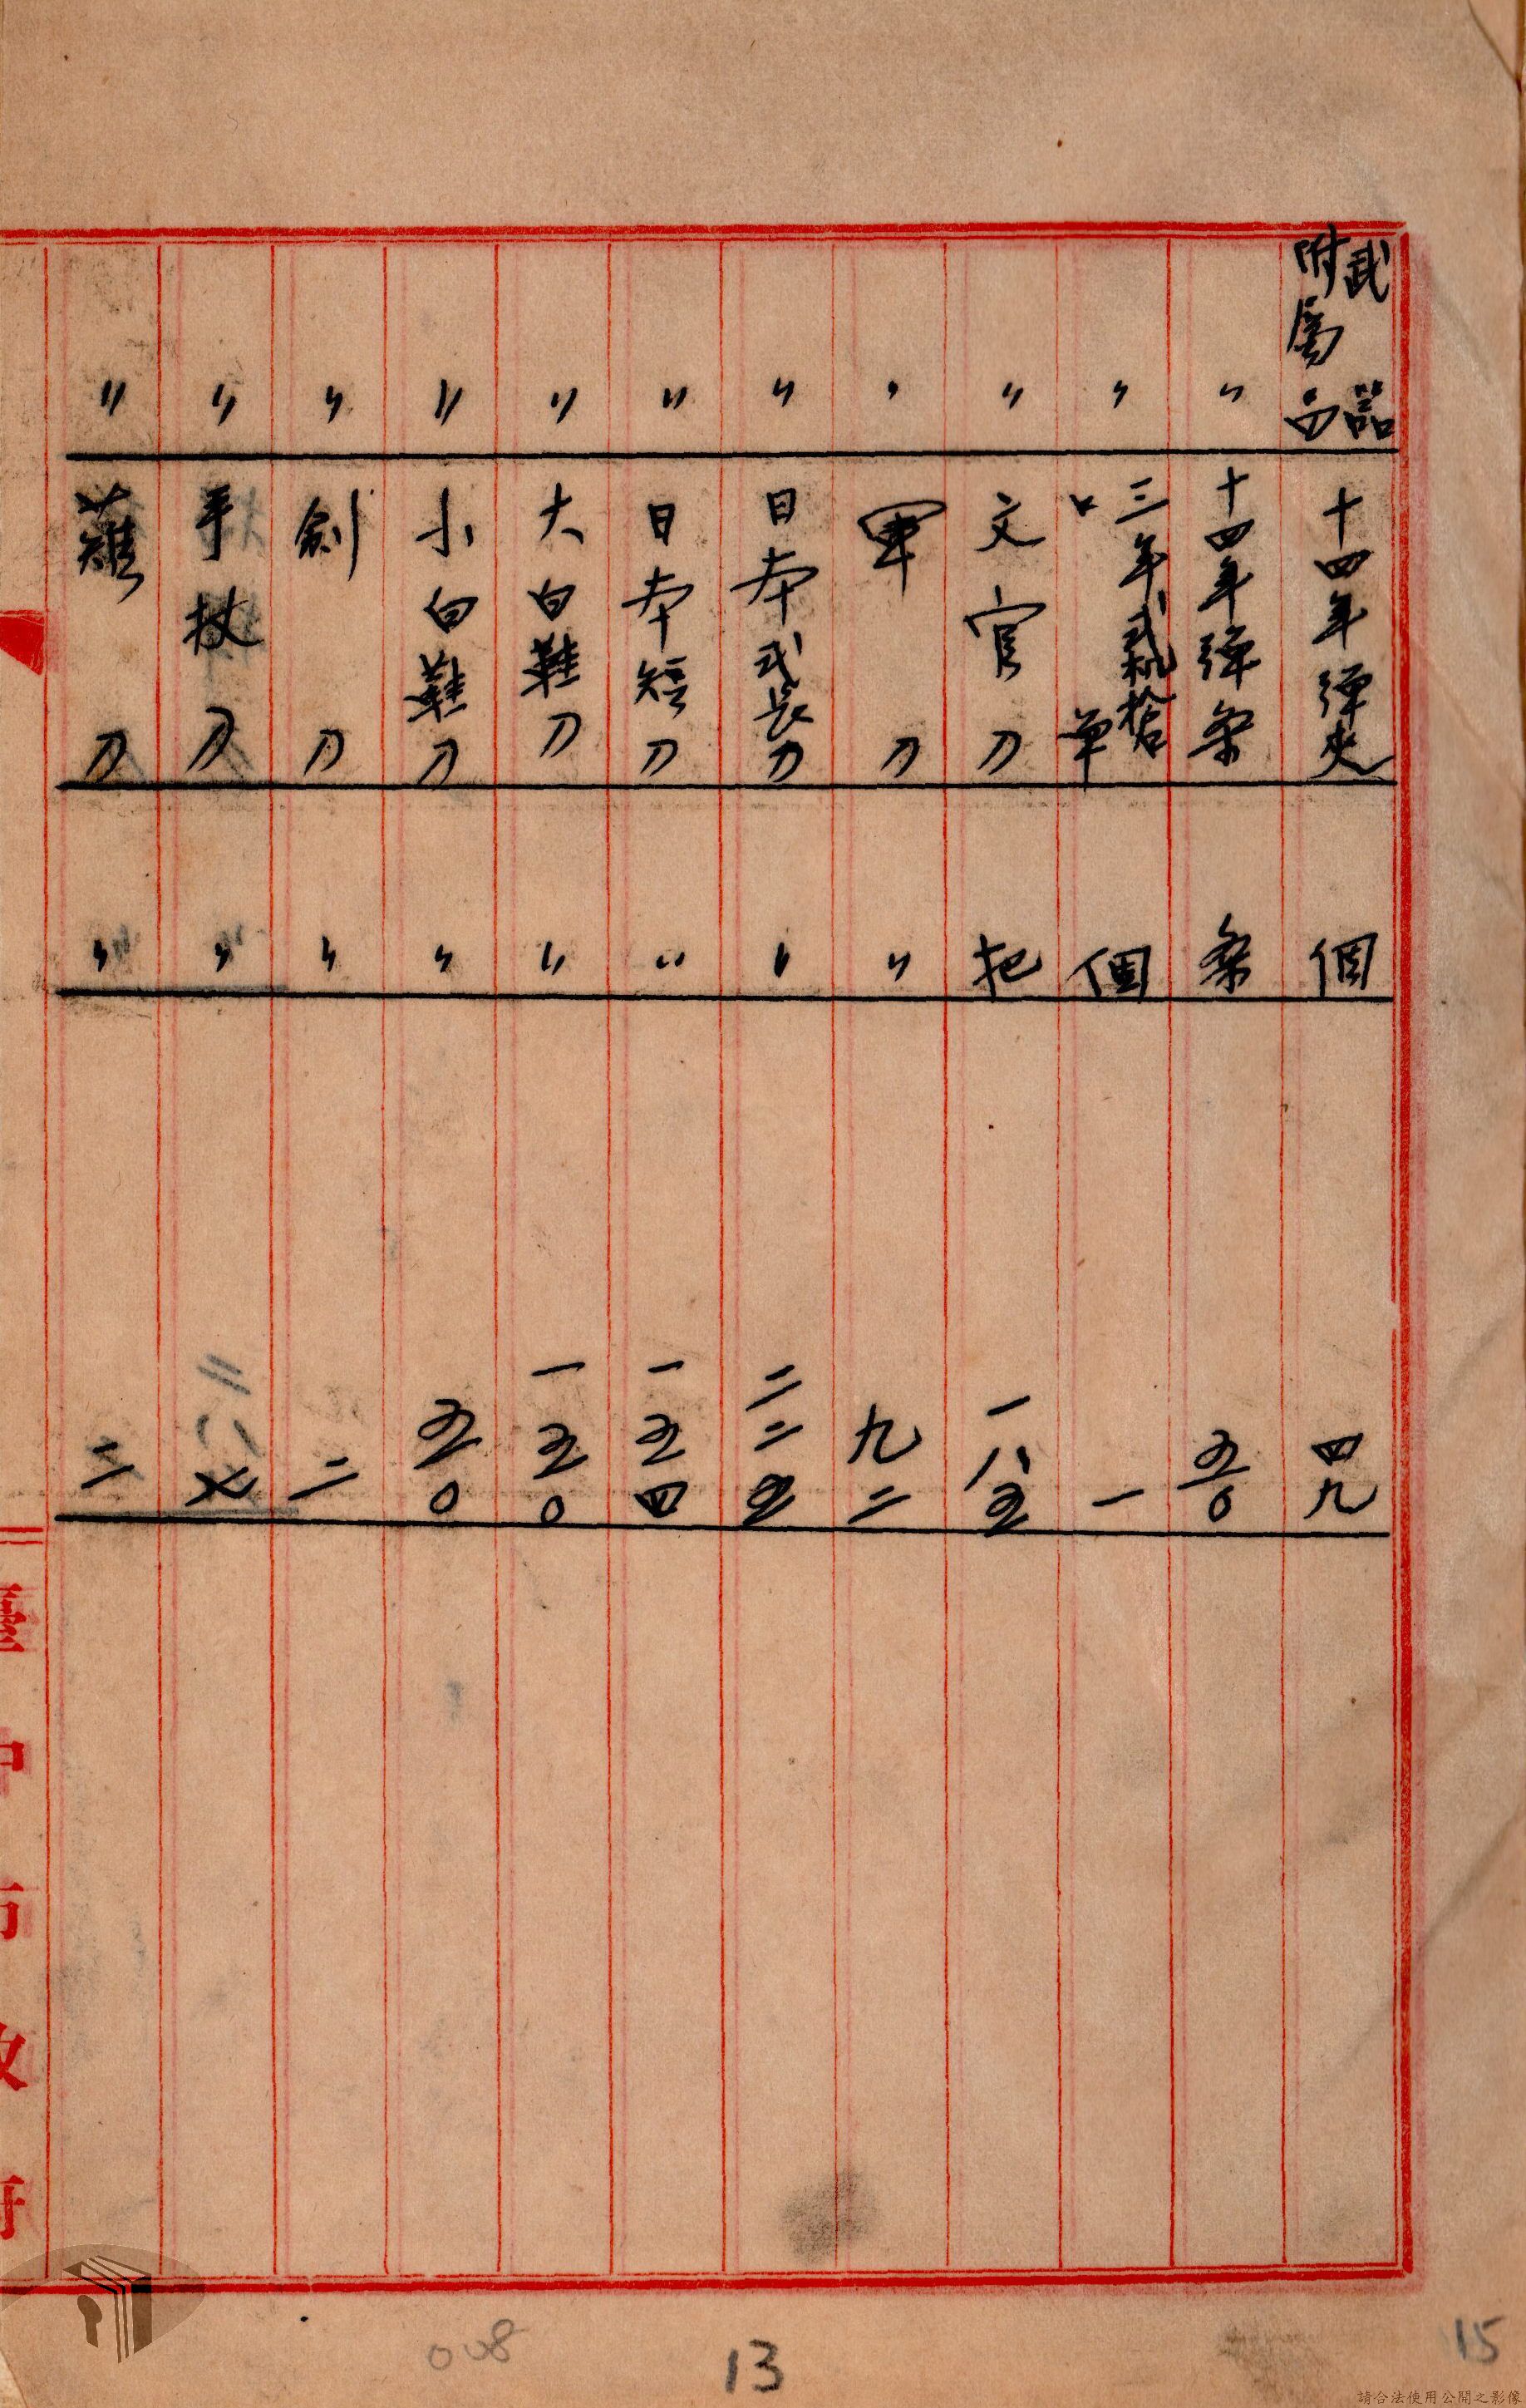 武器附屬品 十四年彈夾 個 四九
〃 十四年彈条 条 五〇
〃 三年式機槍 口 單 個 一
〃 文官刀 把 一八五
〃 軍刀 〃 九二
〃 日本式長刀 〃 二二五
〃 日本短刀 〃 一五四
〃 大白鞋刀 〃 一五〇
〃 小白鞋刀 〃 五〇
〃 劍刀 〃 二
〃 手杖刀 〃 七
〃 薙刀 〃 二
臺中市政府
008
13
15
請合法使用公開之影像